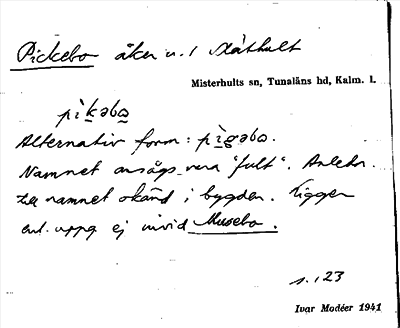 Pickebo åker u. / Släthult
Misterhults sn, Tunaläns hd, Kalm. l.
pìkəbo
Alternativ form: pìgəbo.
Namnet ansågs vara "fult". Anledn.
till namnet okänd i bygden. Ligger
enl. uppg. ej invid Musebo.
s. 123
Ivar Modéer 1941